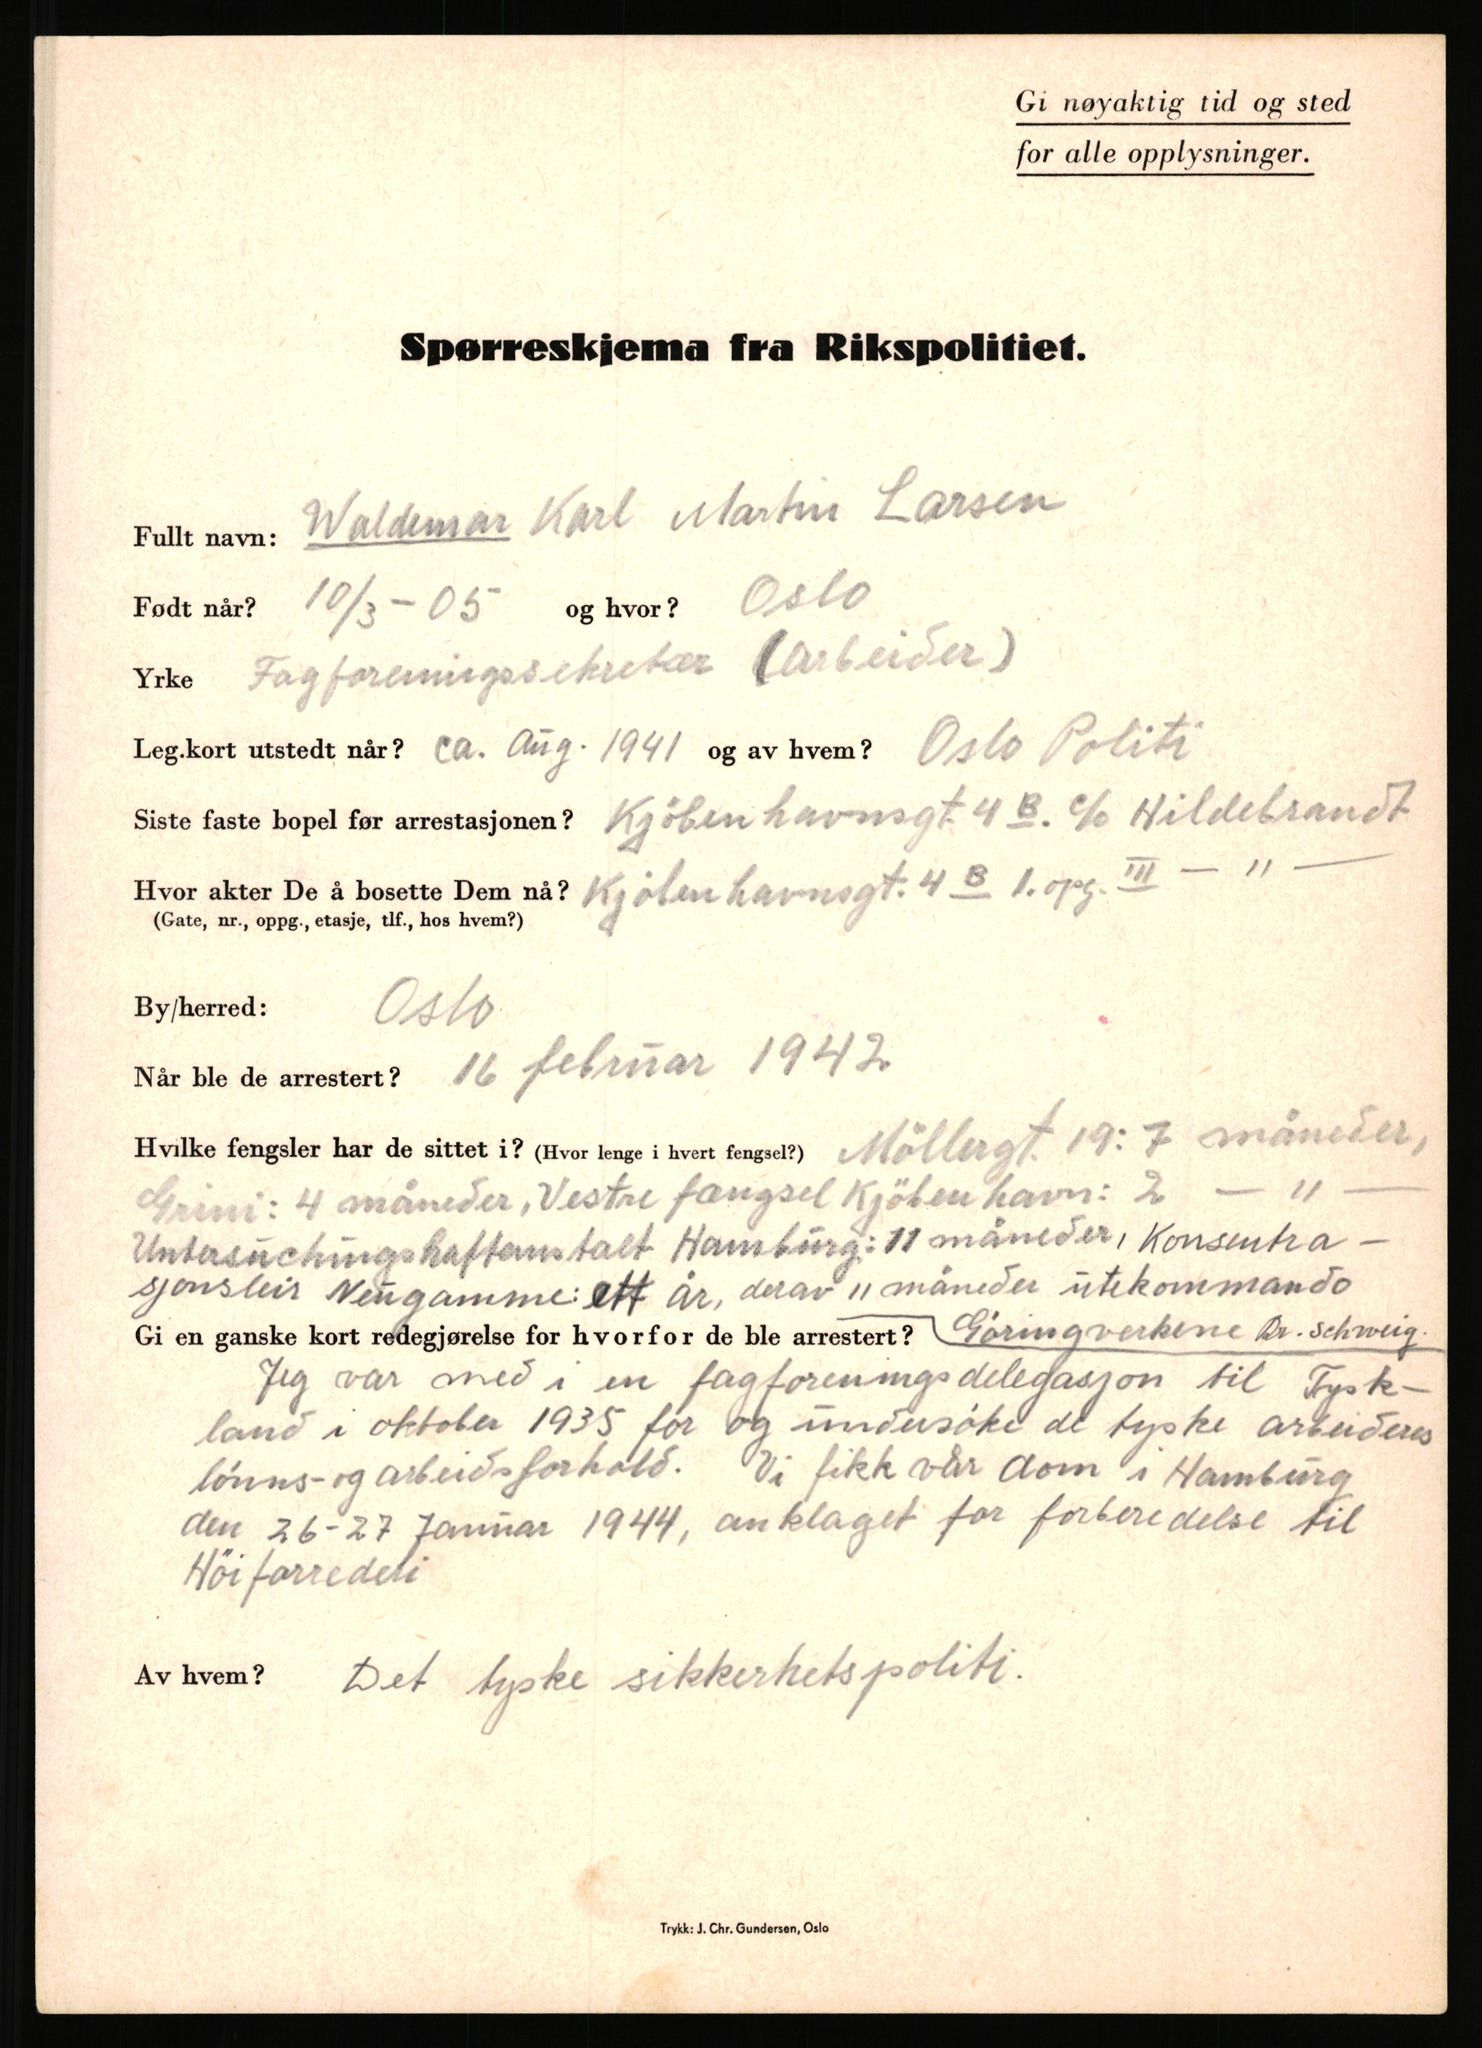 Gi nøyaktig tid og sted
for alle opplysninger.
Spørreskjema fra Rikspolitiet.
Fullt navn: Waldemar Karl Martin Larsen
Født når? 10/3 - 05 og hvor? Oslo
Yrke Fagforeningssekretær (Arbeider)
Leg.kort utstedt når? ca. Aug. 1941 og av hvem? Oslo Politi
Siste faste bopel før arrestasjonen? Kjöbenhavnsgt. 4 B. c/o Hildebrandt
Hvor akter De å bosette Dem nå? Kjöbenhavnsgt. 4 B 1. opg. III — " —
(Gate, nr., oppg., etasje, tlf., hos hvem?)
By/herred: Oslo
Når ble de arrestert? 16 februar 1942
Hvilke fengsler har de sittet i? (Hvor lenge i hvert fengsel?) Möllergt. 19: 7 måneder,
Grini: 4 måneder, Vestre fængsel Kjöbenhavn: 2 — " —
Untersuchungshaftanstalt Hamburg: 11 måneder, Konsentra-
sjonsleir Neugamme: ett år, derav 11 måneder utekommando
Gi en ganske kort redegjørelse for hvorfor de ble arrestert? Göringverkene Br. schweig.
Jeg var med i en fagforeningsdelegasjon til Tysk-
land i oktober 1935 for og undersöke de tyske arbeideres
lönns- og arbeidsforhold. Vi fikk vår dom i Hamburg
den 26-27 Januar 1944, anklaget for forberedelse til
Höiforrederi
Av hvem? Det tyske sikkerhetspoliti.
Trykk: J. Chr. Gundersen, Oslo